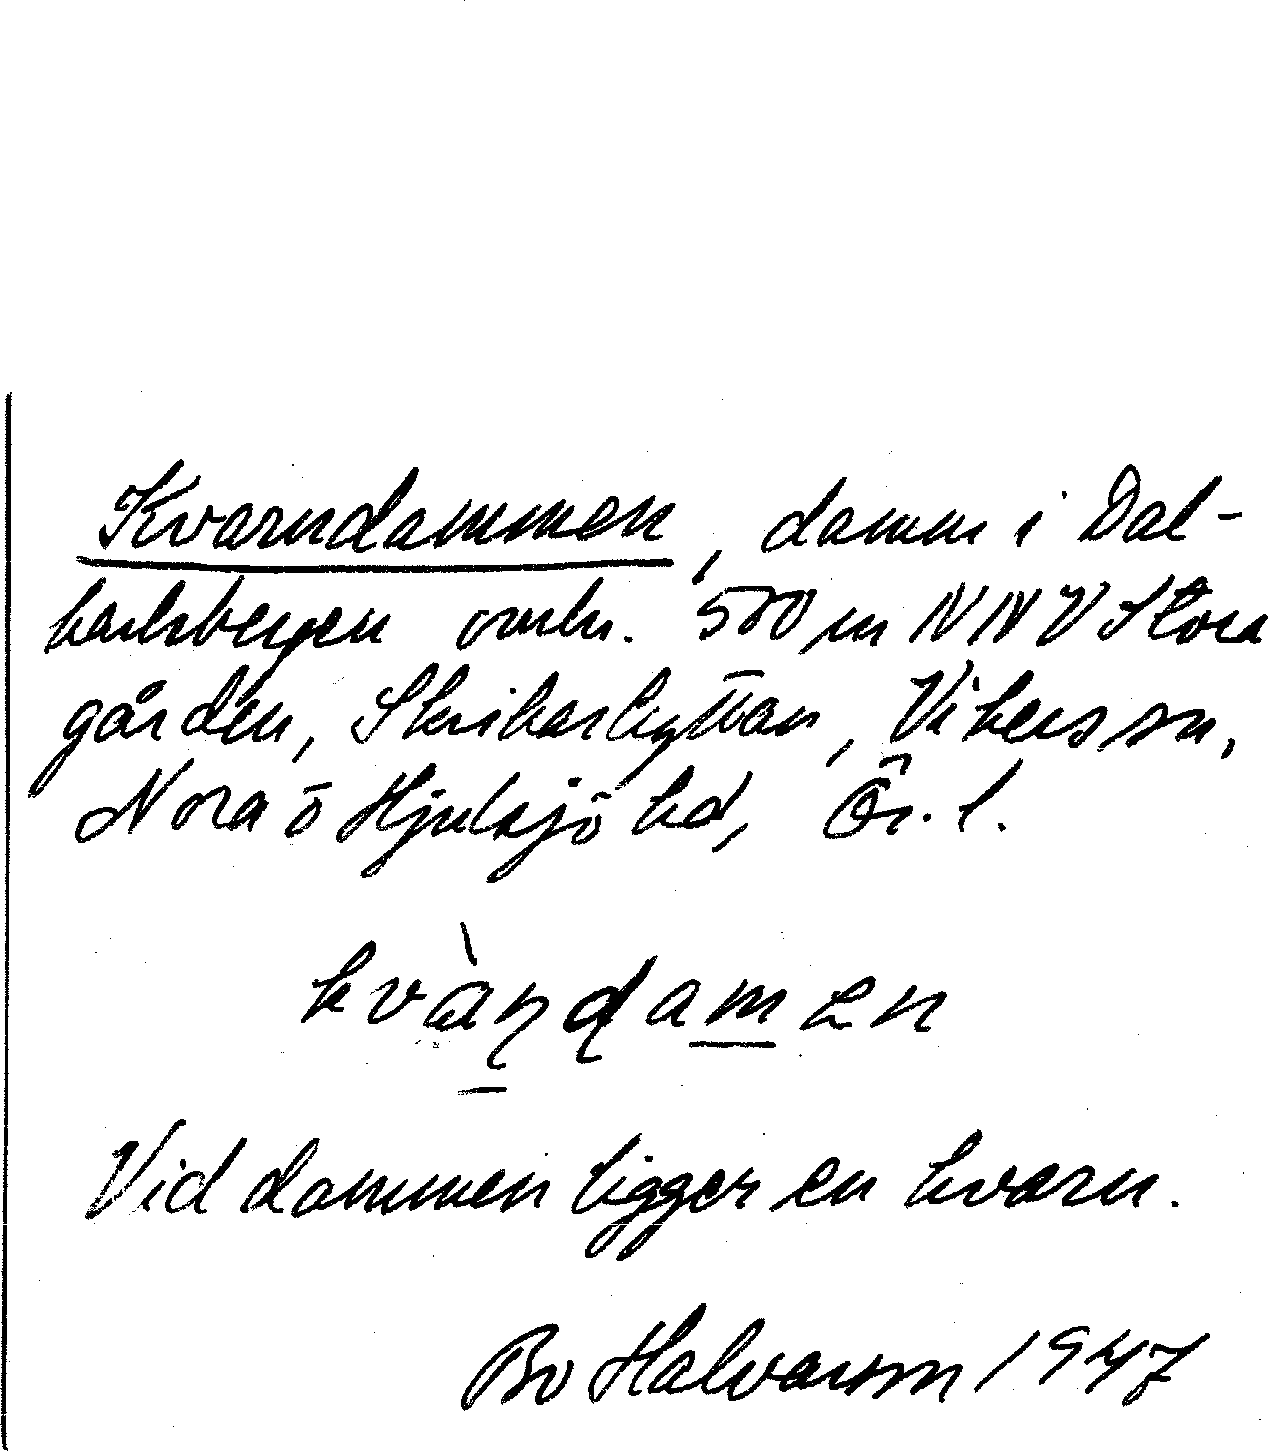 Kvarndammen, damm i Dal-
karlsbergen omkr. 500 m NNV Stora
gården, Skrikarhyttan, Vikers sn,
Nora ō Hjulsjö hd, Ör. l.
kvàɳɖamen
Vid dammen ligger en kvarn.
Bo Halvarson 1947